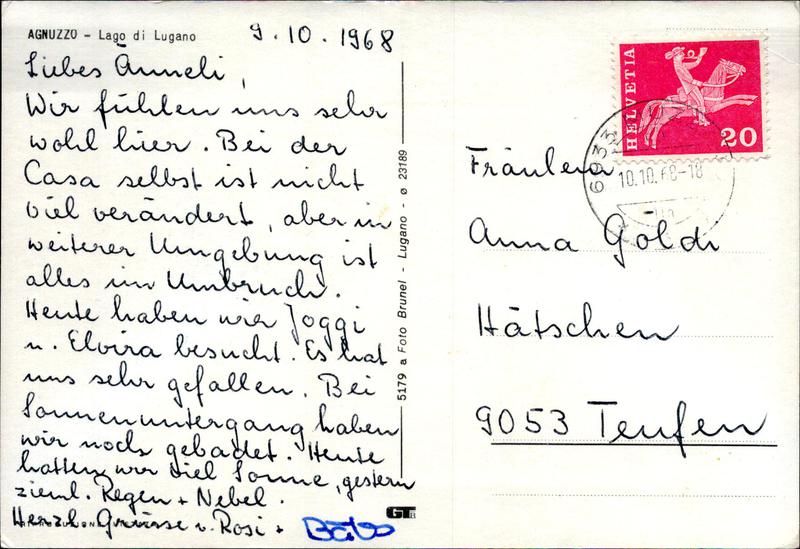 AGNUZZO - Lago di Lugano
9.10.1968
Liebes Änneli,
Wir fühlen uns sehr
wohl hier. Bei der
Casa selbst ist nicht
viel verändert, aber in
weiterer Umgebung ist
alles im Umbruch.
Heute haben wir Joggi
u. Elvira besucht. Es hat
uns sehr gefallen. Bei
Sonnenuntergang haben
wir noch gebadet. Heute
hatten wir viel Sonne, gestern
zieml. Regen + Nebel.
Herzl. Grüsse v. Rosi +
5179 a Foto Brunel - Lugano - ø 23189
HELVETIA
20
6933
10.10.68-18
Fräulein
Anna Goldi
Hätschen
9053 Teufen